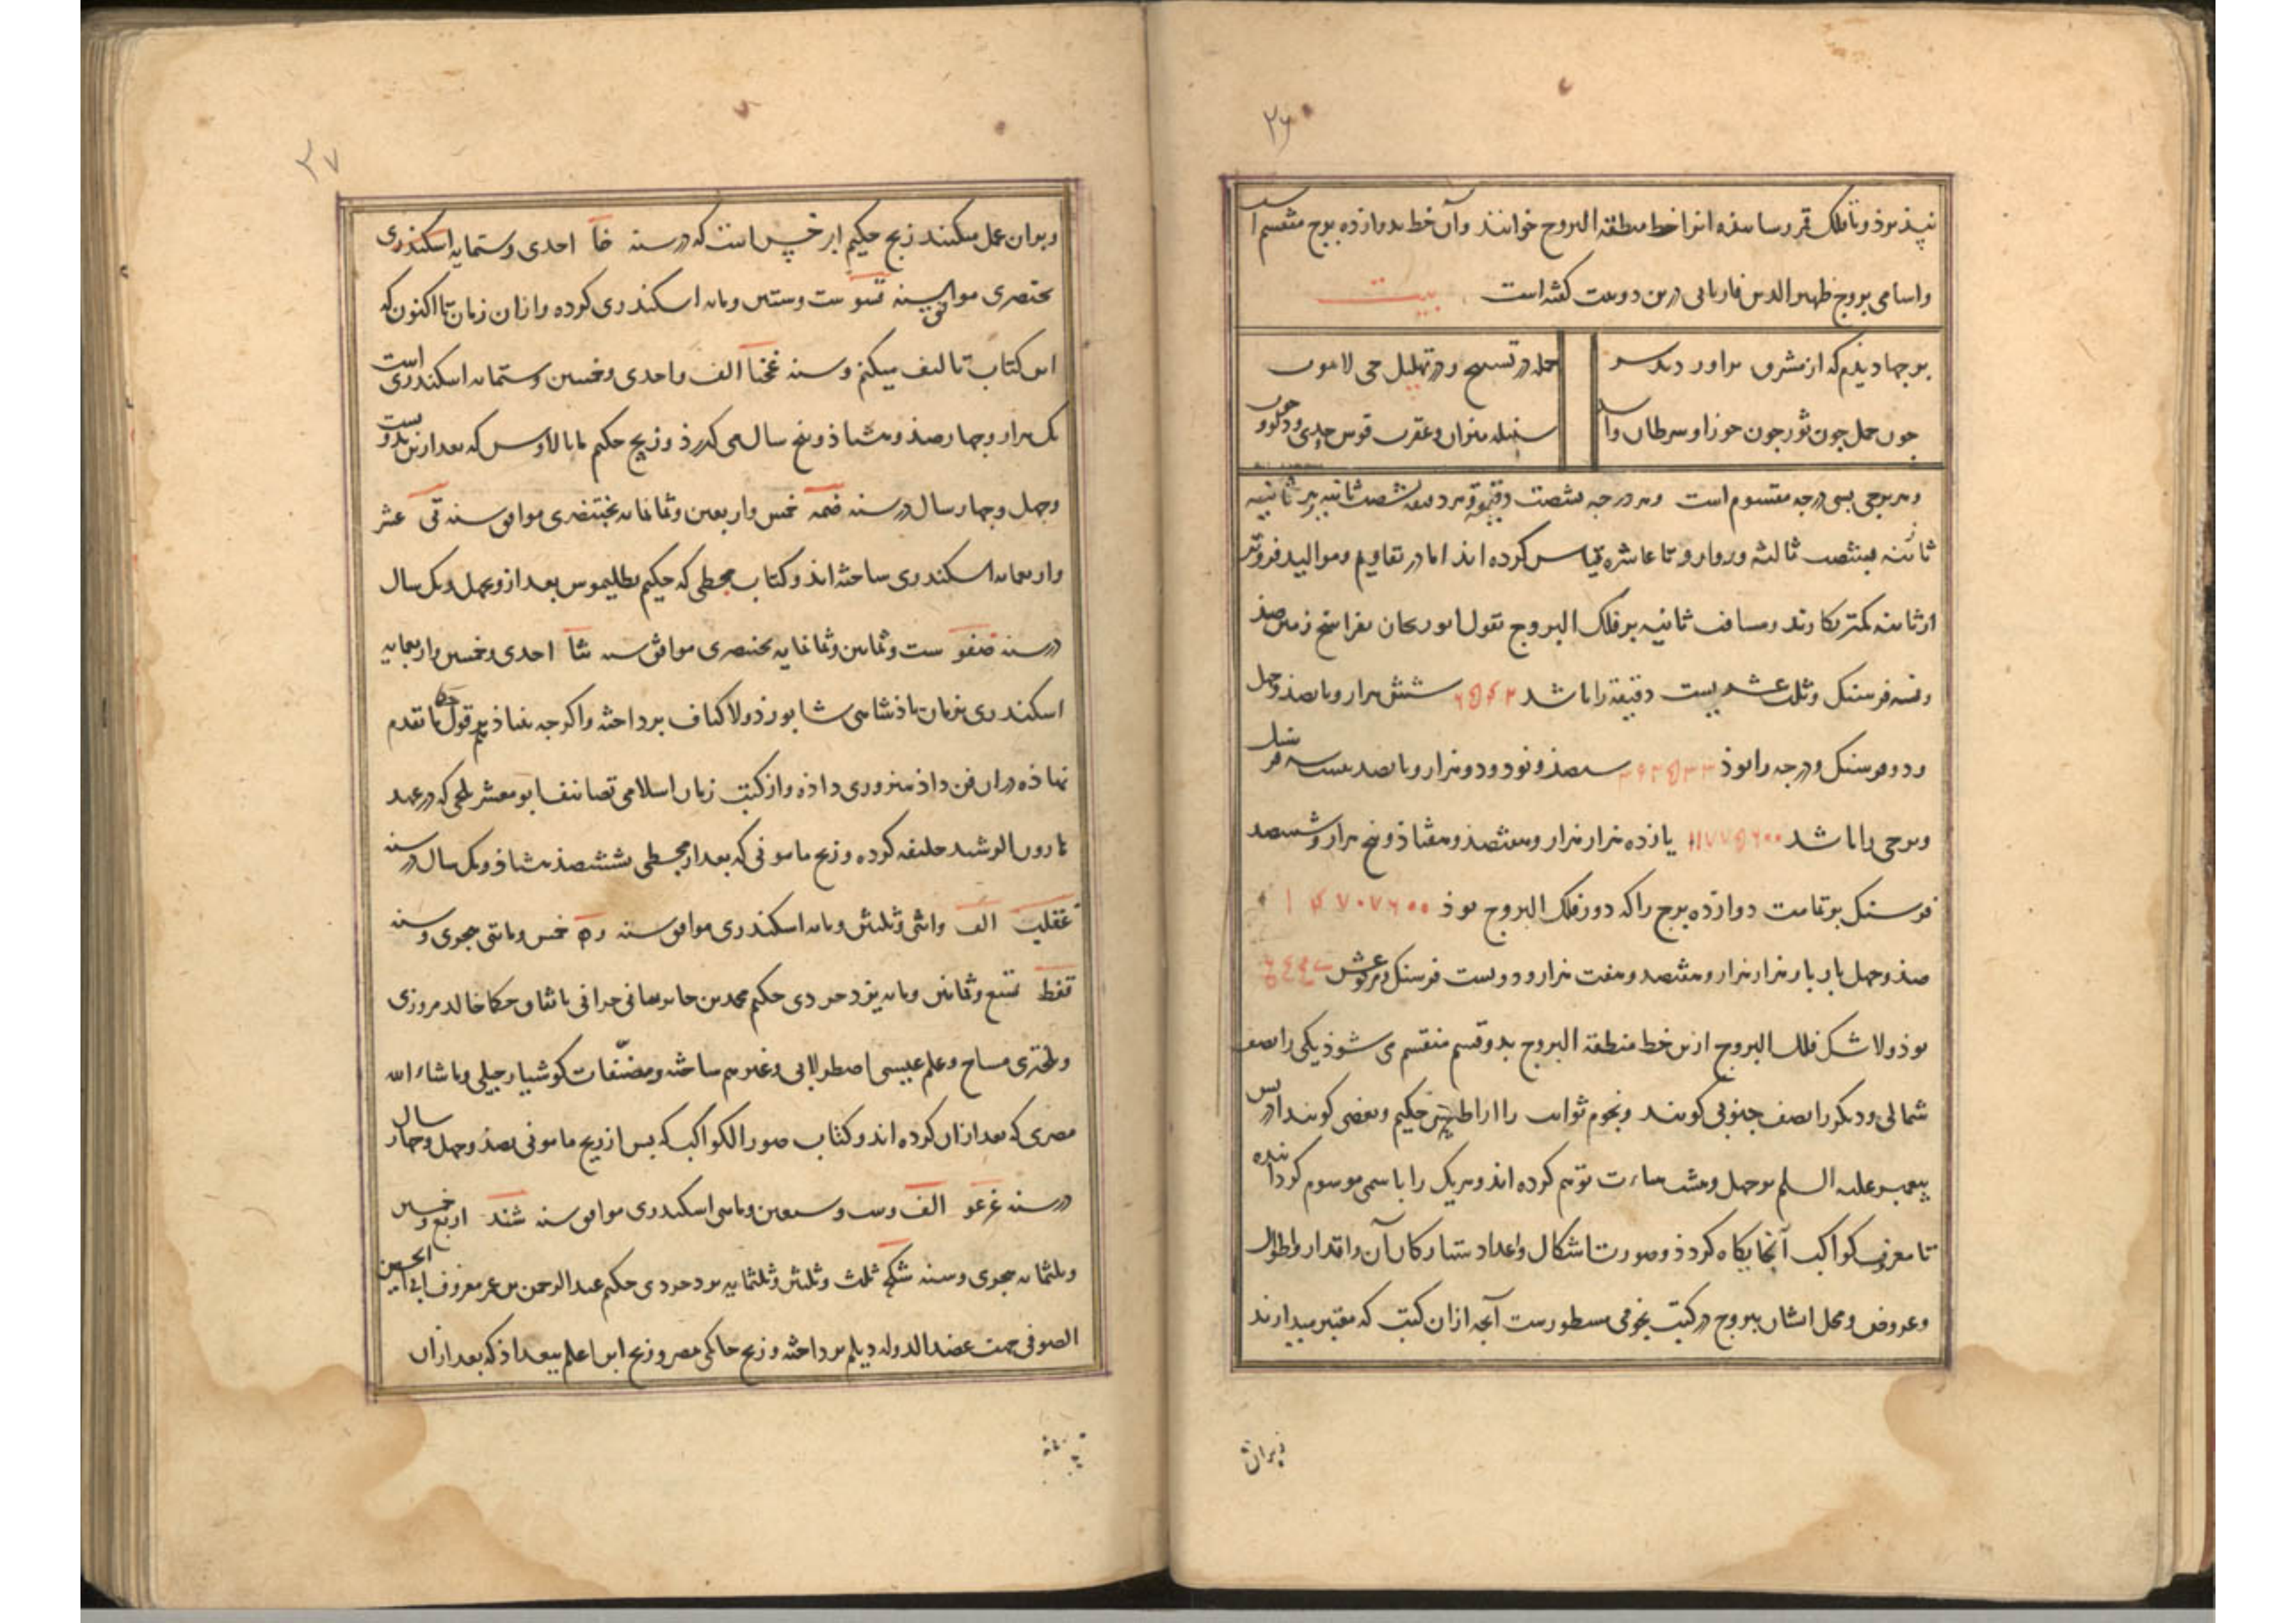 ۲۶
نپذیرد و تا فلک قمر و سا سفره انرا خط منطقة البروج خوانند و آن خط بدوازده برج منقسم است
و اسامی بروج ظهیر الدین فاریابی درین دو بیت گفته است بیت
برجها دیدم که از مشرق براوردند سر
جمله در تسبیح و در تهلیل حی لا یموت
چون حمل چون ثور چون جوزا و سرطان و اسد
سنبله میزان و عقرب قوس جدی و دلو و حوت
و هر برجی بسی درجه مقسوم است و هر درجه بشصت دقیقه و هر دقیقه بشصت ثانیه و هر ثانیه
ثانیه بشصت ثالثه و روابع و تا عاشره قیاس کرده اند اما در تقاویم و موالید فروتر
از ثانیه کمتر بکارند و مسافت ثانیه بر فلک البروج بقول ابوریحان بفراسخ زمین صذ
و نه فرسنک و ثلث عشر بیست دقیقه را باشد ۶۵۴۲ شش هزار و پانصذ و چهل
و دو فرسنک و درجه را بوذ ۳۹۲۵۲۳ سیصذ و نود و دو هزار و پانصد بیست سه فرسنک
و برجی را باشد ۱۱۷۷۵۶۰۰ یازده هزار هزار و هفتصذ و هفتاذ و پنج هزار و ششصد
فرسنک بر تمامت دوازده برج را که دور فلک البروج بوذ ۱۴۷۰۷۶۰۰
صذ و چهل بار هزار هزار و هفتصد و هفت هزار و دویست فرسنک و عرش
بوذ و لا شک فلک البروج ازین خط منطقة البروج بدو قسم منقسم می شوذ یکی را نصف
شمالی و دیکر را نصف جنوبی کویند و نجوم ثوابت را اراطیس حکیم و بعضی کویند ادریس
پیغمبر علیه السلم بر چهل و هشت صورت توهم کرده اند و هر یک را باسمی موسوم کردانیده
تا معرفت کواکب آنجایگاه کردذ و صورت اشکال و اعداد ستارکان آن و اقدار و اطوال
و عروض و محل ایشان ببروج در کتب نجومی مسطورست آنچه ازان کتب که معتبر میدارند
و بران
۲۷
و بران عمل میکنند زیج حکیم ابرخس است که در سنه خا احدی و ستمایه اسکندری
بختنصری موافق سنه قسو ست و ستین و مایه اسکندری کرده و ازان زمان تا اکنون که
این کتاب تالیف میکنم و سنه غخنا الف و احدی و خمسین و ستمایه اسکندری است
یک هزار و چهار صذ و هشتاذ و پنج سال می کذرذ و زیج حکیم مانالاوس که بعد ازین بدویست
و چهل و چهار سال در سنه ضمه خمس و اربعین و ثمانمایه بختنصری موافق سنه تی عشر
و اربعمایه اسکندری ساخته اند و کتاب مجسطی که حکیم بطلیموس بعد ازو بچهل و یک سال
در سنه ضفو ست و ثمانین و ثمانمایه بختنصری موافق سنه تنا احدی و خمسین و اربعمایه
اسکندری بزمان باذشاهی شابور ذو الاکتاف برداخته و اکر چه بنیاذ بر قول حکما تقدم
نهاذه دران فن داذ هنروری داذه و از کتب زمان اسلامی تصانیف ابو معشر بلخی که در عهد
هارون الرشید خلیفه کرده و زیج مامونی که بعد از مجسطی بششصذ هشتاذ و یک سال در سنه
غقلب الف و اثنی و ثلثین و مایه اسکندری موافق سنه ره خمس و مایتی هجری و سنه
قفط تسع و ثمانین و مایه یزدجردی حکیم محمد بن جابر بتانی حرانی باتفاق حکما خالد مروزی
و بحتری مساح و علم عیسی اصطرلابی و غیرهم ساخته و مصنّفات کوشیار جیلی و ماشاء الله
مصری که بعد ازان کرده اند و کتاب صور الکواکب که بس از زیج مامونی بصذ و چهل و چهار سال
در سنه غرعو الف و ست و سبعین و مایتی اسکندری موافق سنه شند اربع و خمسین
و ثلثمایه هجری و سنه شلج ثلث و ثلثین و ثلثمایه یزدجردی حکیم عبد الرحمن بن عمر معروف بابی الحسین
الصوفی جهت عضد الدوله دیلم برداخته و زیج حاکمی مصر و زیج ابن اعلم ببغداذ که بعد ازان